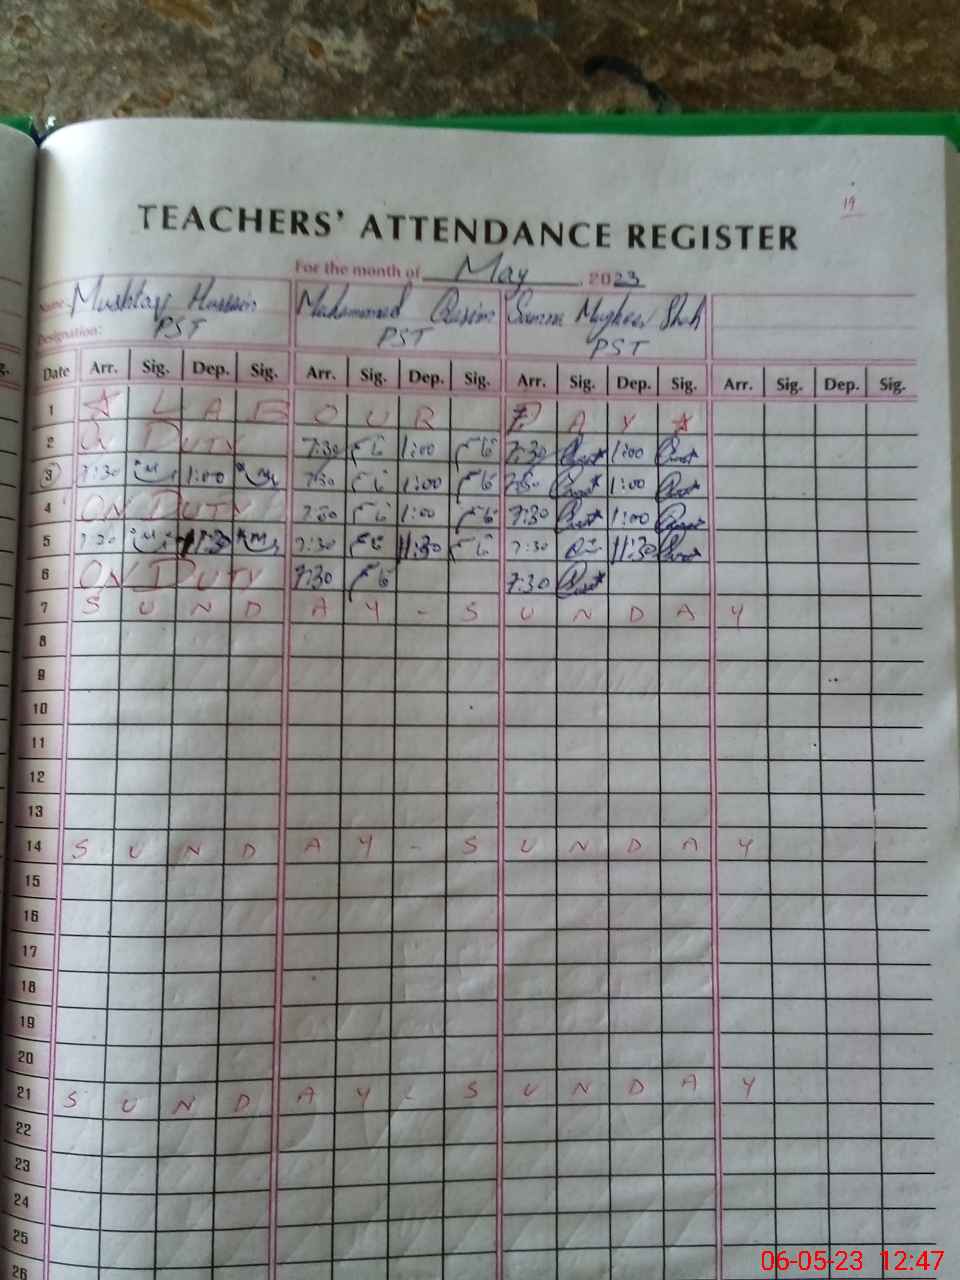 19
TEACHERS' ATTENDANCE REGISTER
For the month of May, 2023
Name: Mushtaq Hussain Muhammad Qasim Samra Mugheer Shah
Designation: PST PST PST
g. Date Arr. Sig. Dep. Sig. Arr. Sig. Dep. Sig. Arr. Sig. Dep. Sig. Arr. Sig. Dep. Sig.
1 L A B O U R D A Y
2 On DUTY 7:30 1:00 7:30 1:00
3 7:30 1:00 7:30 1:00 7:30 1:00
4 ON DUTY 7:30 1:00 7:30 1:00
5 7:30 11:30 7:30 11:30 7:30 11:30
6 ON DUTY 7:30 7:30
7 S U N D A Y - S U N D A Y
8
9
10
11
12
13
14 S U N D A Y - S U N D A Y
15
16
17
18
19
20
21 S U N D A Y - S U N D A Y
22
23
24
25
26
06-05-23 12:47